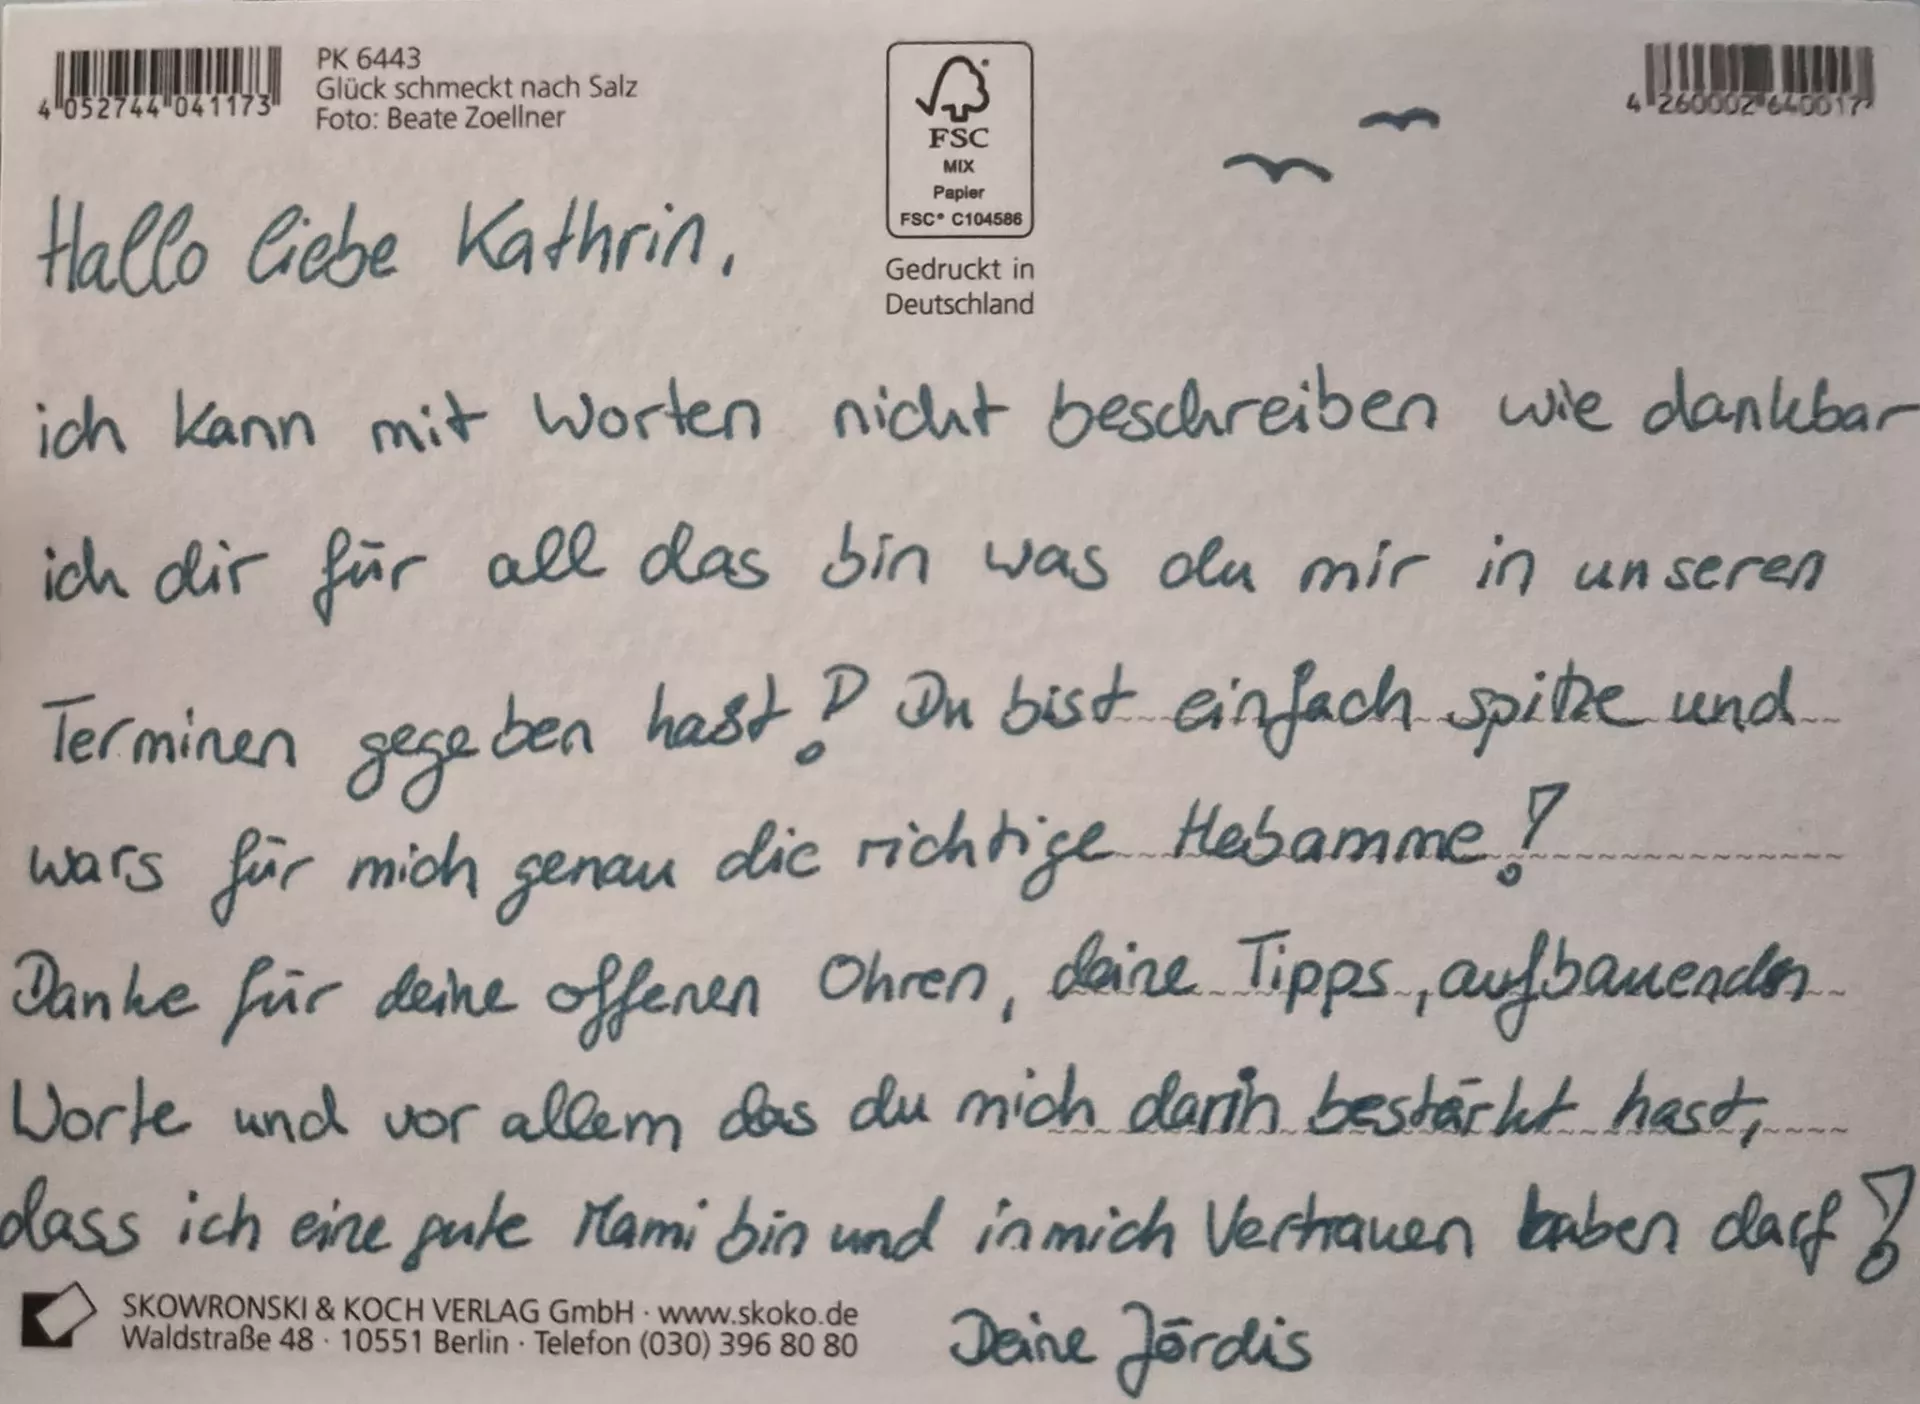 PK 6443
Glück schmeckt nach Salz
Foto: Beate Zoellner
4 052744 041173
FSC
MIX
Papier
FSC® C104586
Gedruckt in
Deutschland
4 260002 640017
Hallo liebe Kathrin,
ich kann mit Worten nicht beschreiben wie dankbar
ich dir für all das bin was du mir in unseren
Terminen gegeben hast! Du bist einfach spitze und
wars für mich genau die richtige Hebamme!
Danke für deine offenen Ohren, deine Tipps, aufbauenden
Worte und vor allem das du mich darin bestärkt hast,
dass ich eine gute Mami bin und in mich Vertrauen haben darf!
Deine Jördis
SKOWRONSKI & KOCH VERLAG GmbH · www.skoko.de
Waldstraße 48 · 10551 Berlin · Telefon (030) 396 80 80